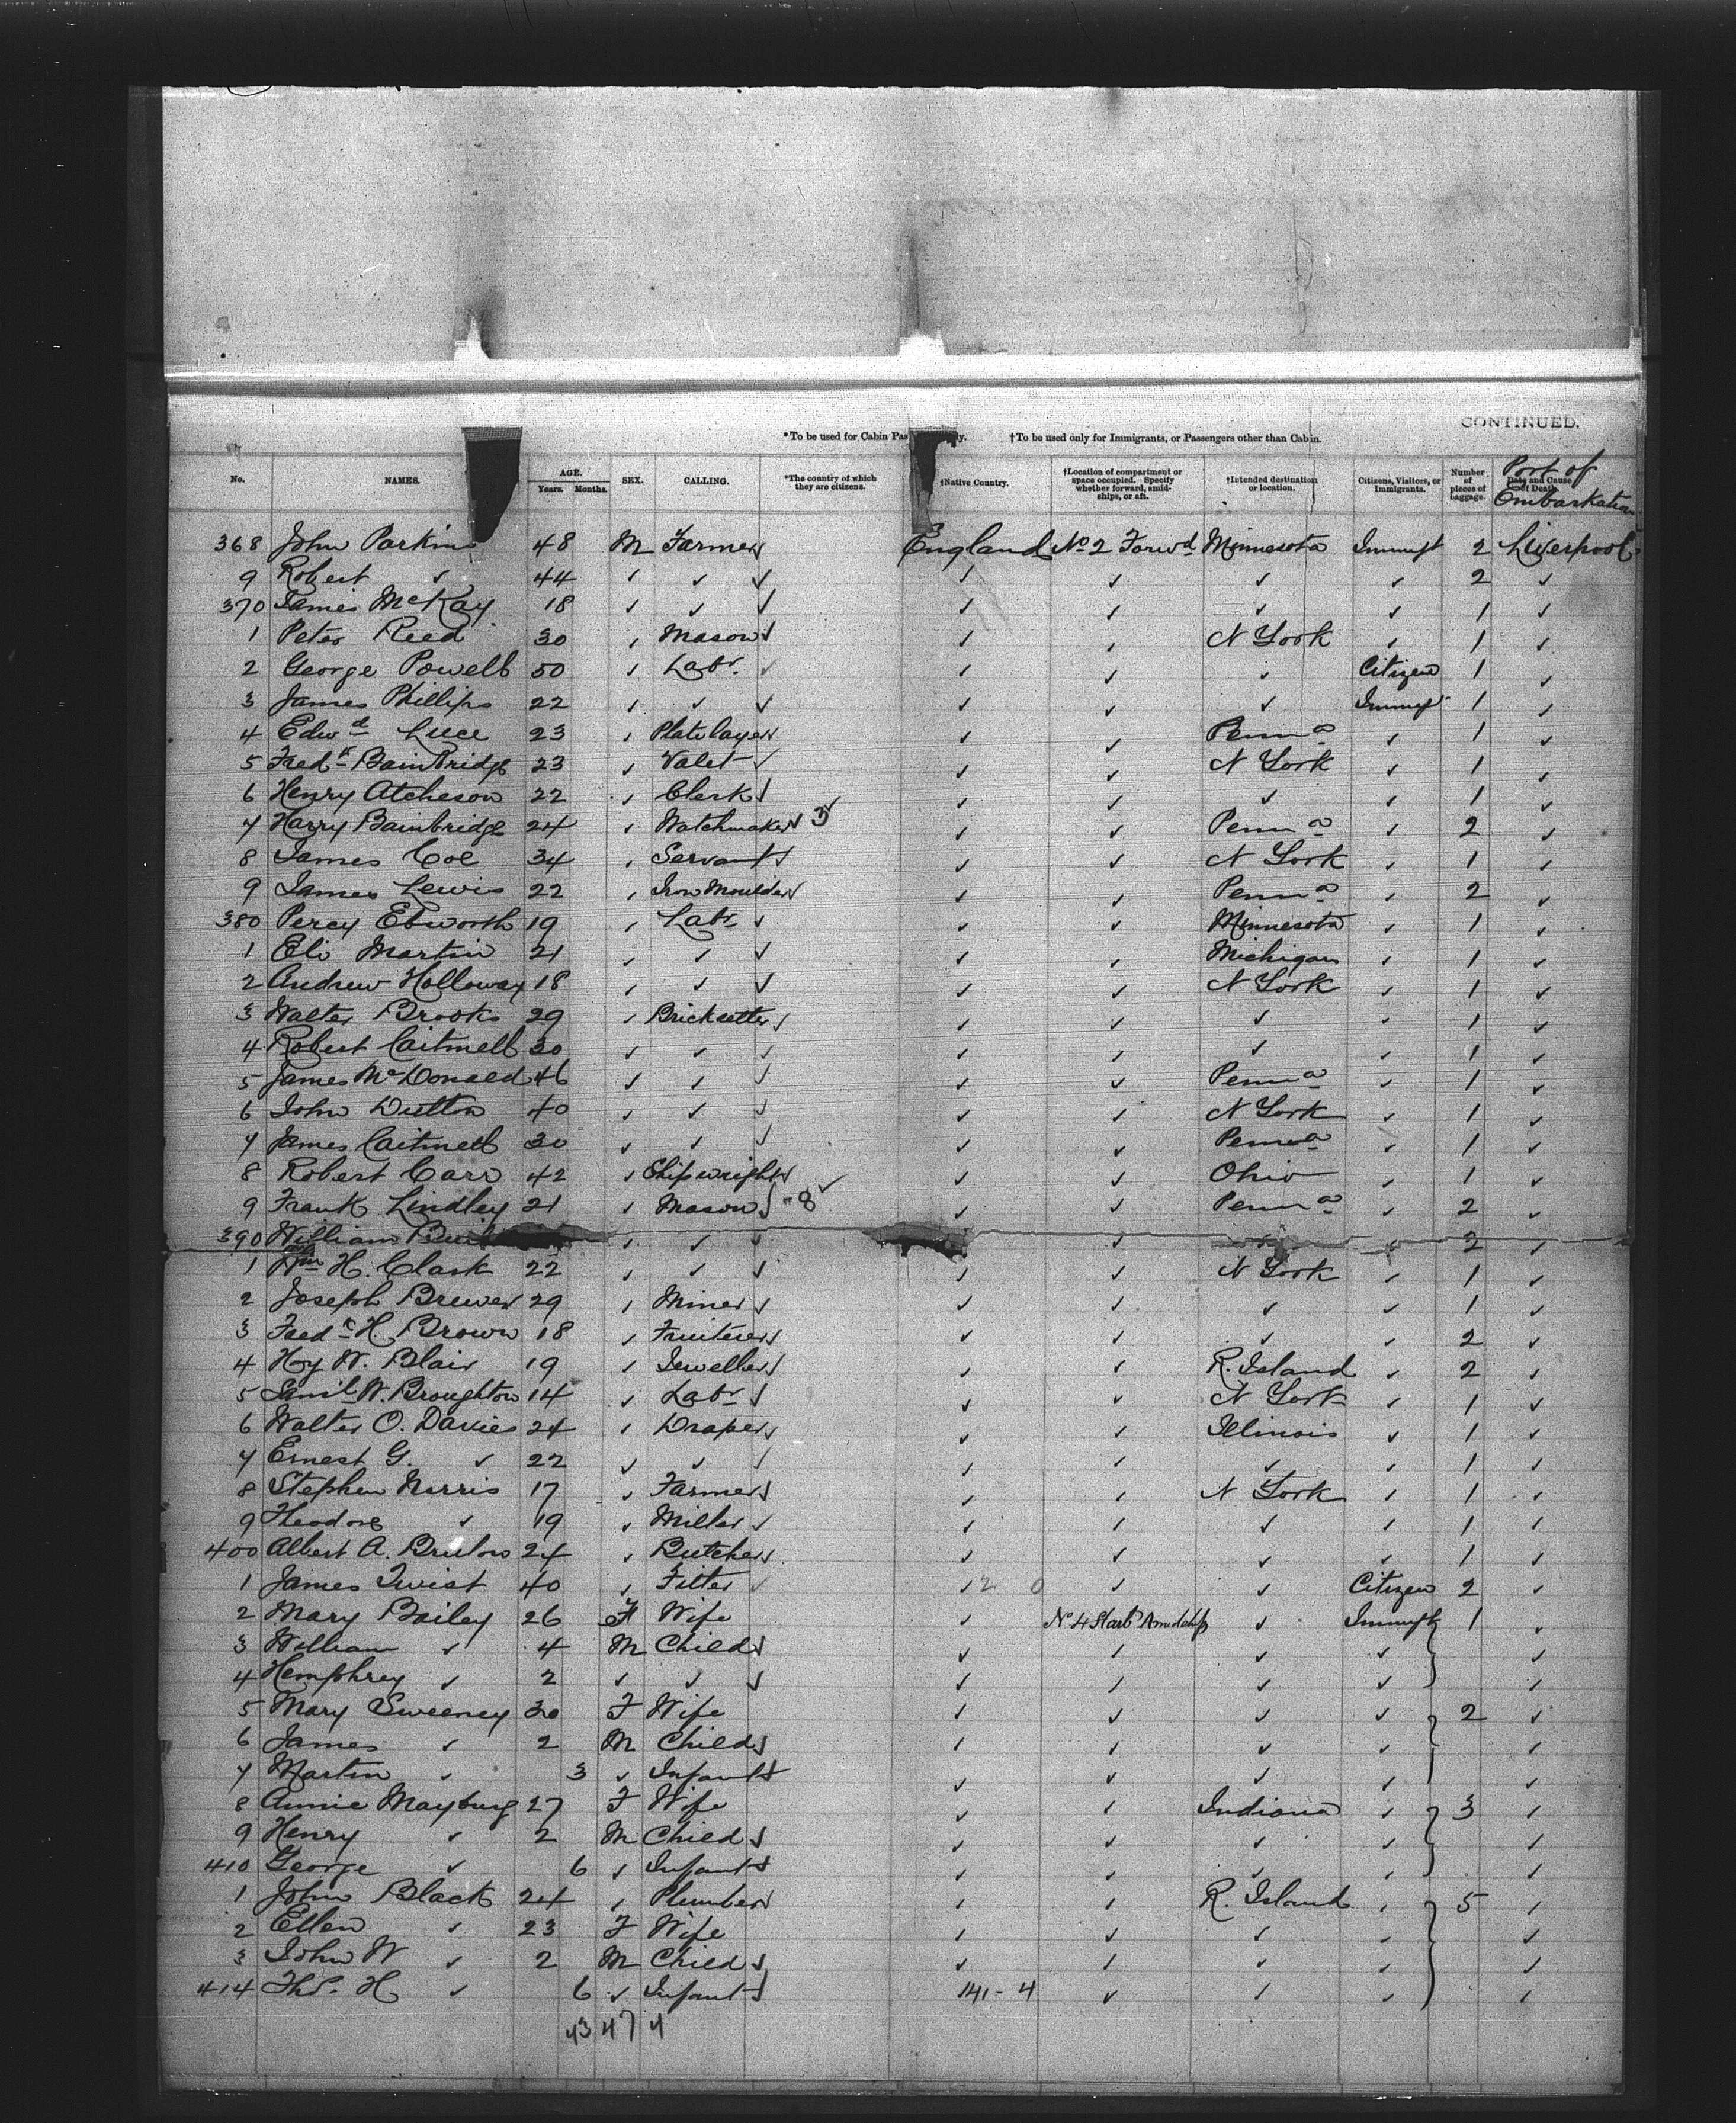 CONTINUED.
*To be used for Cabin Pas y. †To be used only for Immigrants, or Passengers other than Cabin.
No. NAMES. AGE. Years. Months. SEX. CALLING. *The country of which they are citizens. †Native Country. †Location of compartment or space occupied. Specify whether forward, amidships, or aft. †Intended destination or location. Citizens, Visitors, or Immigrants. Number of pieces of Luggage. Port of Embarkation Date and Cause of Death.
368 John Parkin 48 M Farmer England No 2 Forwd Minnesota Immigt 2 Liverpool
9 Robert ✓ 44 ✓ ✓ ✓ ✓ ✓ ✓ ✓ 2 ✓
370 James McKay 18 ✓ ✓ ✓ ✓ ✓ ✓ ✓ 1 ✓
1 Peter Reed 30 ✓ Mason ✓ ✓ ✓ N York ✓ 1 ✓
2 George Powell 50 ✓ Labr ✓ ✓ ✓ ✓ Citizen 1 ✓
3 James Phillips 22 ✓ ✓ ✓ ✓ ✓ ✓ Immigt 1 ✓
4 Edwd Luce 23 ✓ Platelayer ✓ ✓ ✓ Penna ✓ 1 ✓
5 Fredk Bainbridge 23 ✓ Valet ✓ ✓ ✓ N York ✓ 1 ✓
6 Henry Atcheson 22 ✓ Clerk ✓ ✓ ✓ ✓ ✓ 1 ✓
7 Harry Bainbridge 24 ✓ Watchmaker ✓ 3 ✓ ✓ ✓ Penna ✓ 2 ✓
8 James Coe 34 ✓ Servant ✓ ✓ ✓ N York ✓ 1 ✓
9 James Lewis 22 ✓ Iron Moulder ✓ ✓ ✓ Penna ✓ 2 ✓
380 Percy Ebworth 19 ✓ Labr ✓ ✓ ✓ Minnesota ✓ 1 ✓
1 Eli Martin 21 ✓ ✓ ✓ ✓ ✓ Michigan ✓ 1 ✓
2 Andrew Holloway 18 ✓ ✓ ✓ ✓ ✓ N York ✓ 1 ✓
3 Walter Brooks 29 ✓ Bricksetter ✓ ✓ ✓ ✓ ✓ 1 ✓
4 Robert Caitmell 30 ✓ ✓ ✓ ✓ ✓ ✓ ✓ 1 ✓
5 James McDonald 46 ✓ ✓ ✓ ✓ ✓ Penna ✓ 1 ✓
6 John Dutton 40 ✓ ✓ ✓ ✓ ✓ N York ✓ 1 ✓
7 James Caitmell 30 ✓ ✓ ✓ ✓ ✓ Penna ✓ 1 ✓
8 Robert Carr 42 ✓ Shipwright ✓ ✓ ✓ Ohio ✓ 1 ✓
9 Frank Lindley 21 ✓ Mason ✓ "8 ✓ ✓ ✓ Penna ✓ 2 ✓
390 William ✓ ✓ ✓ ✓ ✓ 2 ✓
1 Wm H. Clark 22 ✓ ✓ ✓ ✓ ✓ N York ✓ 1 ✓
2 Joseph Brewer 29 ✓ Miner ✓ ✓ ✓ ✓ ✓ 1 ✓
3 Fredk H Brown 18 ✓ Fruiterer ✓ ✓ ✓ ✓ ✓ 2 ✓
4 Hy W. Blair 19 ✓ Jeweller ✓ ✓ ✓ R. Island ✓ 2 ✓
5 Saml W. Broughton 14 ✓ Labr ✓ ✓ ✓ N York ✓ 1 ✓
6 Walter O. Davies 24 ✓ Draper ✓ ✓ ✓ Illinois ✓ 1 ✓
7 Ernest G. ✓ 22 ✓ ✓ ✓ ✓ ✓ ✓ ✓ 1 ✓
8 Stephen Norris 17 ✓ Farmer ✓ ✓ ✓ N York ✓ 1 ✓
9 Theodore ✓ 19 ✓ Miller ✓ ✓ ✓ ✓ ✓ 1 ✓
400 Albert A. 24 ✓ Butcher ✓ ✓ ✓ ✓ ✓ 1 ✓
1 James Twist 40 ✓ Fitter ✓ ✓ 2 0 ✓ ✓ Citizen 2 ✓
2 Mary Bailey 26 F Wife ✓ No 4 Starb Amidship ✓ Immigt 1 ✓
3 William ✓ 4 M Child ✓ ✓ ✓ ✓ ✓ ✓
4 Hemphrey ✓ 2 ✓ ✓ ✓ ✓ ✓ ✓ ✓ ✓
5 Mary Sweeney 30 F Wife ✓ ✓ ✓ ✓ 2 ✓
6 James ✓ 2 M Child ✓ ✓ ✓ ✓ ✓ ✓
7 Martin ✓ 3 ✓ Infant ✓ ✓ ✓ ✓ ✓ ✓
8 Annie Mayburg 27 F Wife ✓ ✓ Indiana ✓ 3 ✓
9 Henry ✓ 2 M Child ✓ ✓ ✓ ✓ ✓ ✓
410 George ✓ 6 ✓ Infant ✓ ✓ ✓ ✓ ✓ ✓
1 John Black 24 ✓ Plumber ✓ ✓ ✓ R. Island ✓ 5 ✓
2 Ellen ✓ 23 F Wife ✓ ✓ ✓ ✓ ✓
3 John W ✓ 2 M Child ✓ ✓ ✓ ✓ ✓ ✓
414 Thos. H ✓ 6 ✓ Infant ✓ 141 - 4 ✓ ✓ ✓ ✓
43 47 4